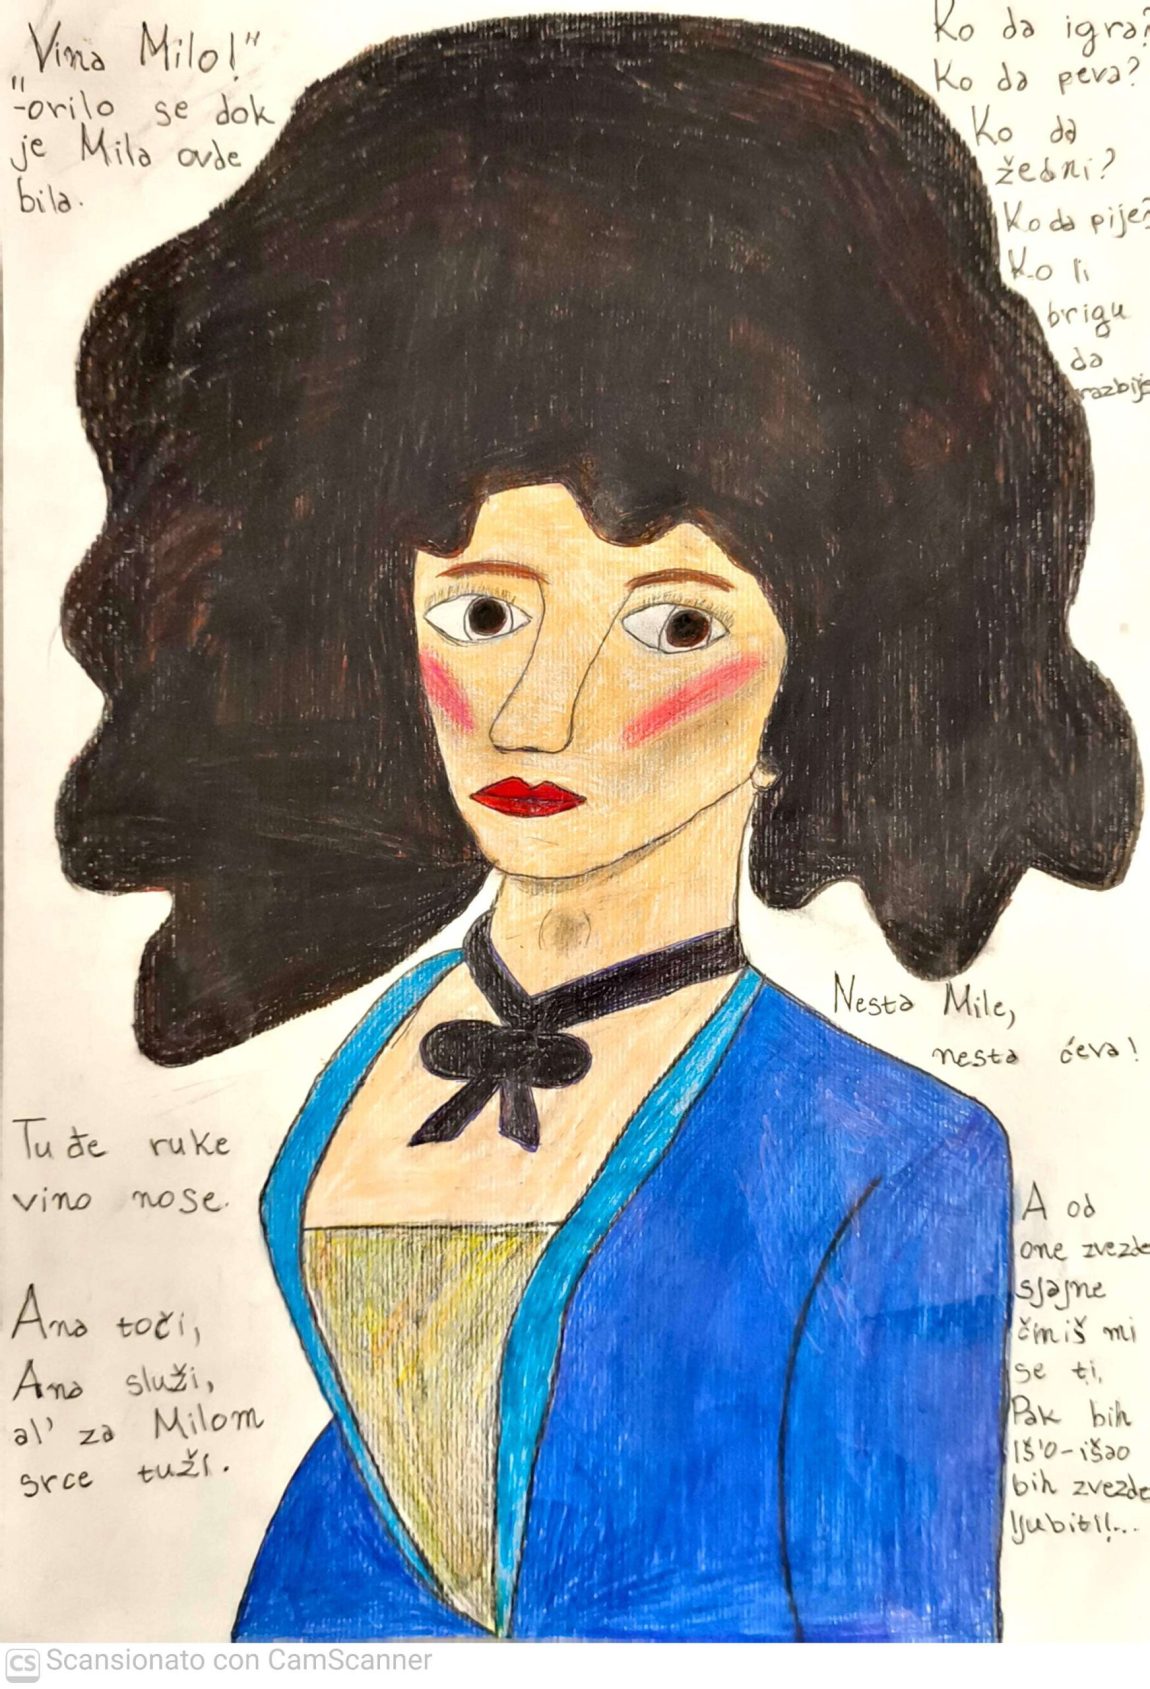 „Vina Milo!"
-orilo se dok
je Mila ovde
bila.
Ko da igra?
Ko da peva?
Ko da
žedni?
Ko da pije?
Ko li
brigu
da
razbije
Nesta Mile,
nesta ćeva!
Tuđe ruke
vino nose.
Ana toči,
Ana služi,
al' za Milom
srce tuži.
A od
one zvezde
sjajne
činiš mi
se ti.
Pak bih
iš'o-išao
bih zvezde
ljubiti!...
CS Scansionato con CamScanner